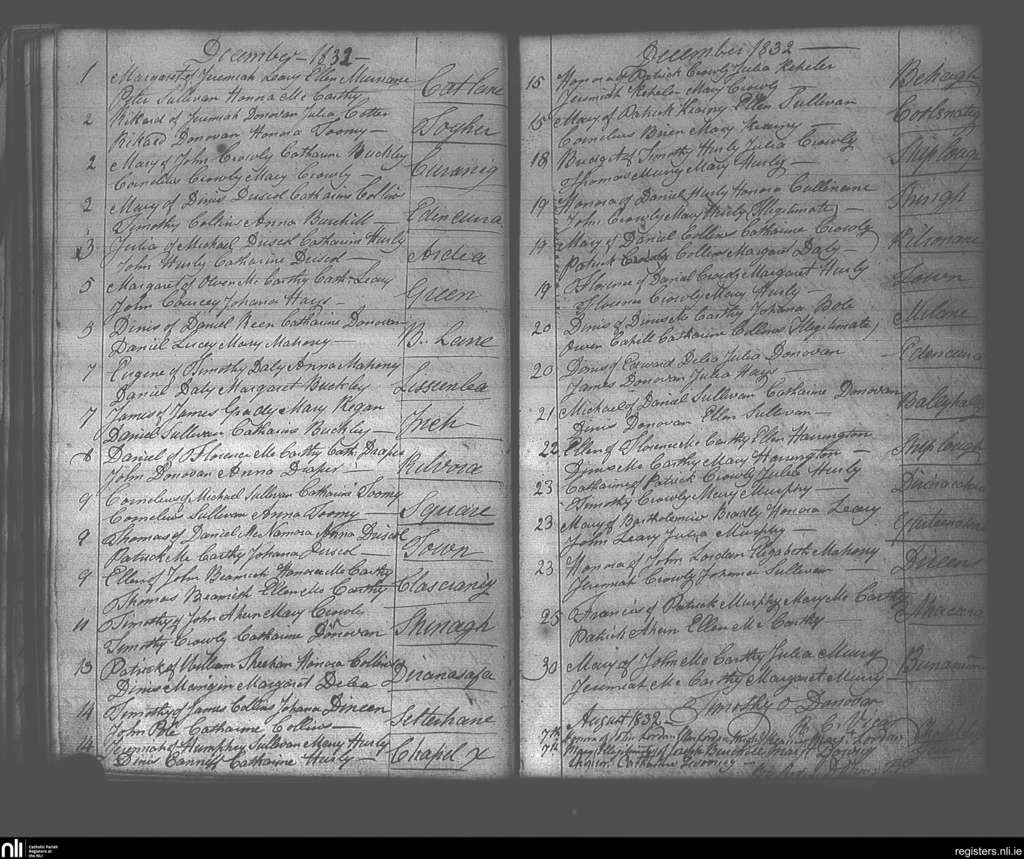 December - 1832
1 Margaret of Jeremiah Leary Ellen Murnane
Peter Sullivan Honora Mc Carthy
Cat Lane
2 Rikard of Jeremiah Donovan Julia Cotter
Rikard Donovan Honora Toomy
Togher
2 Mary of John Crowly Catharine Buckley
Cornelius Crowly Mary Crowly
Curanig
2 Mary of Dinis Driscol Catharine Collins
Timothy Collins Anna Burchill
Edencurra
3 Julia of Michael Driscol Catharine Hurly
John Hurly Catharine Driscol
Ardea
5 Margaret of Owen Mc Carthy Cath. Leary
John Courcey Johana Hays
Green
5 Dinis of Daniel Keen Catharine Donovan
Daniel Lucey Mary Mahony
B. Lane
7 Eugene of Timothy Daly Anna Mahony
Daniel Daly Margaret Buckley
Lisseenlea
7 James of James Grady Mary Regan
Daniel Sullivan Catharine Buckley
Inch
8 Daniel of Florence Mc Carthy Cath. Draper
John Donovan Anna Draper
Kilvora
9 Cornelius of Michael Sullivan Catharine Toomy
Cornelius Sullivan Anna Toomy
Square
9 Thomas of Daniel Mc Namara Anna Driscol
Patrick Mc Carthy Johana Driscol
Town
9 Ellen of John Beamish Honora Mc Carthy
Thomas Beamish Ellen Mc Carthy
11 Timothy of John Ahern Mary Crowly
Timothy Crowly Catharine Donovan
Shinagh
13 Patrick of William Sheehan Honora Collins
Dinis Mangin Margaret Delea
14 Timothy of James Collins Johana Dineen
John Pole Catharine Collins
14 Jeremiah of Humphry Sullivan Mary Hurly
Dinis Canniff Catharine Hurly
Chapel x
December 1832
15 Honora of Patrick Crowly Julia Keheler
Jeremiah Keheler Mary Crowly
Behaigh
15 Mary of Patrick Kearny Ellen Sullivan
Cornelius Brien Mary Kearny
18 Bridget of Timothy Hurly Julia Crowly
Thomas Murry Mary Hurly
Ship Lough
19 Honora of Daniel Hurly Honora Cullinane
John Crowly Mary Hurly (Illegitimate)
19 Mary of Daniel Collins Catharine Crowly
Patrick Crowly Collins Margaret Daly
Kilronane
19 Florence of Daniel Crowly Margaret Hurly
Florence Crowly Mary Hurly
Town
20 Dinis of Dinis Mc Carthy Johana Bole
Owen Cahill Catharine Collins (Illegitimate)
Milane
20 Denis of Edward Delea Julia Donovan
James Donovan Julia Hays
Edencurra
21 Michael of Daniel Sullivan Catharine Donovan
Dinis Donovan Ellen Sullivan
22 Ellen of Florence Mc Carthy Ellen Harrington
Dinis Mc Carthy Mary Harrington
Ship Lough
23 Catharine of Patrick Crowly Julia Hurly
Timothy Crowly Mary Murphy
23 Mary of Bartholemiw Bradly Honora Leary
John Leary Julia Murphy
23 Honora of John Lordan Elizabeth Mahony
Jeremiah Crowly Johana Sullivan
Direens
25 Francis of Patrick Murphy Mary Mc Carthy
Patrick Ahern Ellen Mc Carthy
30 Mary of John Mc Carthy Julia Murry
Jeremiah Mc Carthy Margaret Murry
Timothy O Donovan
August 1832
7th
7th
nli
Catholic Parish
Registers at
the NLI
registers.nli.ie